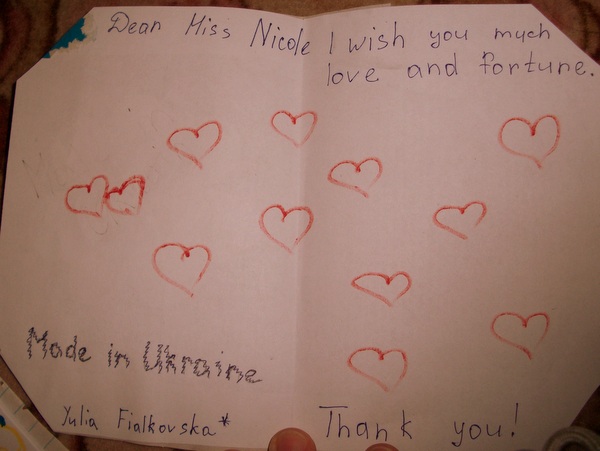 Dear Miss Nicole I wish you much
love and fortune.
Made in Ukraine
Yulia Fialkovska*
Thank you!